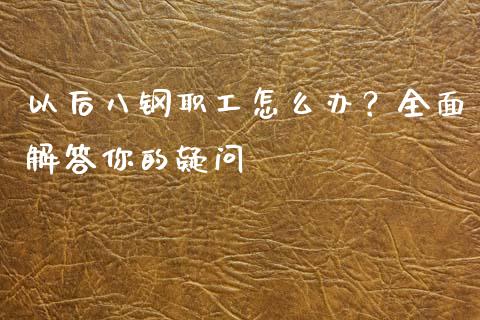 以后八钢职工怎么办？全面
解答你的疑问